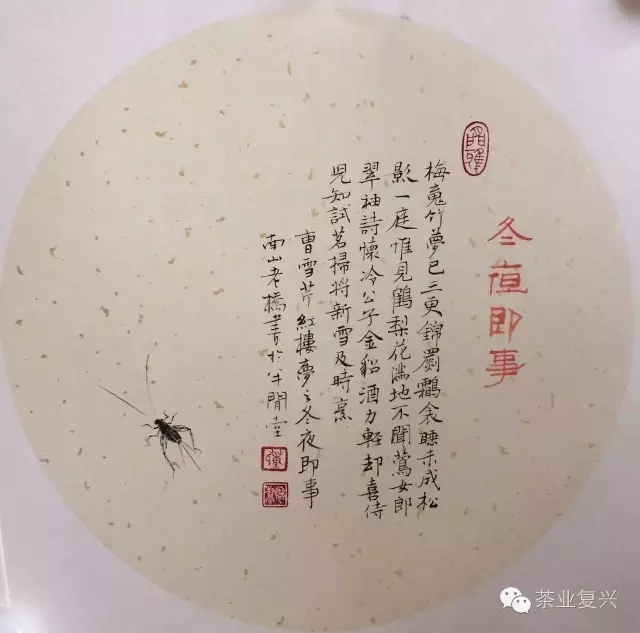 冬夜即事
品雅
梅魂竹夢已三更錦罽鸘衾睡未成松
影一庭惟見鶴梨花滿地不聞鶯女郎
翠袖詩懷冷公子金貂酒力輕却喜侍
兒知試茗掃將新雪及時烹
曹雪芹紅樓夢之冬夜即事
南山老橋書於半閒堂
茶业复兴